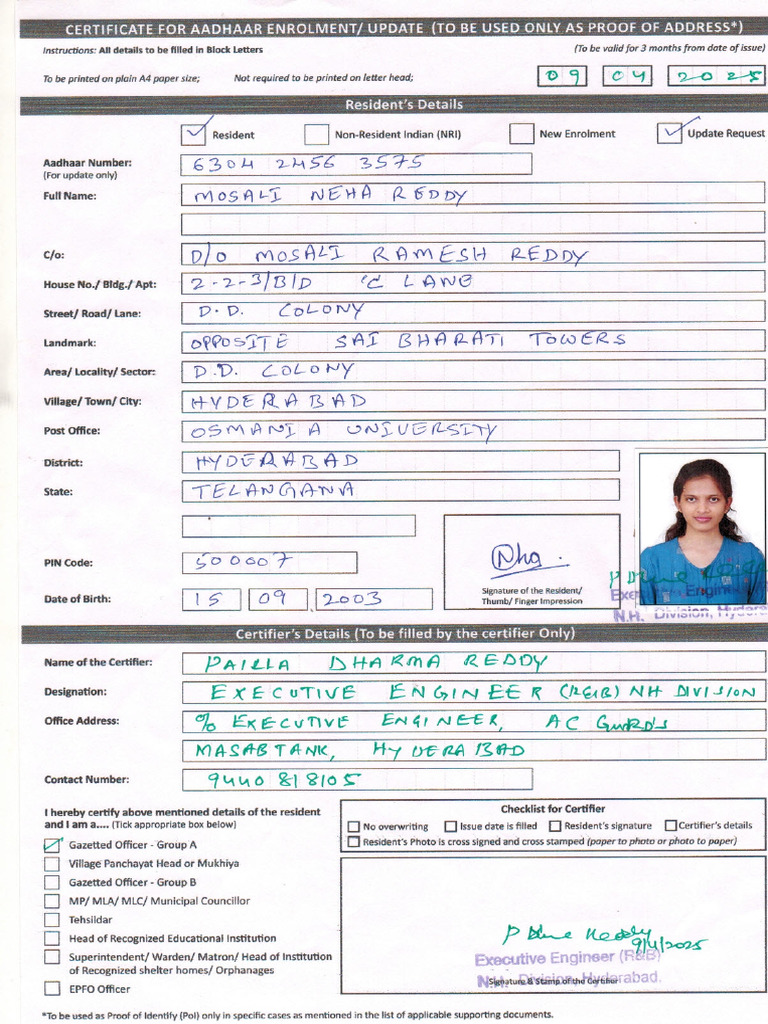 CERTIFICATE FOR AADHAAR ENROLMENT/ UPDATE (TO BE USED ONLY AS PROOF OF ADDRESS*)
Instructions: All details to be filled in Block Letters (To be valid for 3 months from date of issue)
To be printed on plain A4 paper size; Not required to be printed on letter head; 09 04 2025
Resident's Details
Resident Non-Resident Indian (NRI) New Enrolment Update Request
Aadhaar Number: 6304 2456 3575
(For update only)
Full Name: MOSALI NEHA REDDY
C/o: D/O MOSALI RAMESH REDDY
House No./ Bldg./ Apt: 2-2-3/B/D 'C LANE
Street/ Road/ Lane: D.D. COLONY
Landmark: OPPOSITE SAI BHARATI TOWERS
Area/ Locality/ Sector: D.D. COLONY
Village/ Town/ City: HYDERABAD
Post Office: OSMANIA UNIVERSITY
District: HYDERABAD
State: TELANGANA
PIN Code: 500007
Signature of the Resident/
Thumb/ Finger Impression
Executive Engin
N.H. Division, Hydera
Date of Birth: 15 09 2003
Certifier's Details (To be filled by the certifier Only)
Name of the Certifier: PAILLA DHARMA REDDY
Designation: EXECUTIVE ENGINEER (R&B) NH DIVISION
Office Address: % EXECUTIVE ENGINEER, AC GUARD'S
MASABTANK, HYDERABAD
Contact Number: 9440818105
I hereby certify above mentioned details of the resident
and I am a.... (Tick appropriate box below)
Gazetted Officer - Group A
Village Panchayat Head or Mukhiya
Gazetted Officer - Group B
MP/ MLA/ MLC/ Municipal Councillor
Tehsildar
Head of Recognized Educational Institution
Superintendent/ Warden/ Matron/ Head of Institution
of Recognized shelter homes/ Orphanages
EPFO Officer
Checklist for Certifier
No overwriting Issue date is filled Resident's signature Certifier's details
Resident's Photo is cross signed and cross stamped (paper to photo or photo to paper)
Reddy
9/4/2025
Executive Engineer (R&B)
N.H. Division, Hyderabad.
Signature & Stamp of the Certifier
*To be used as Proof of Identify (PoI) only in specific cases as mentioned in the list of applicable supporting documents.